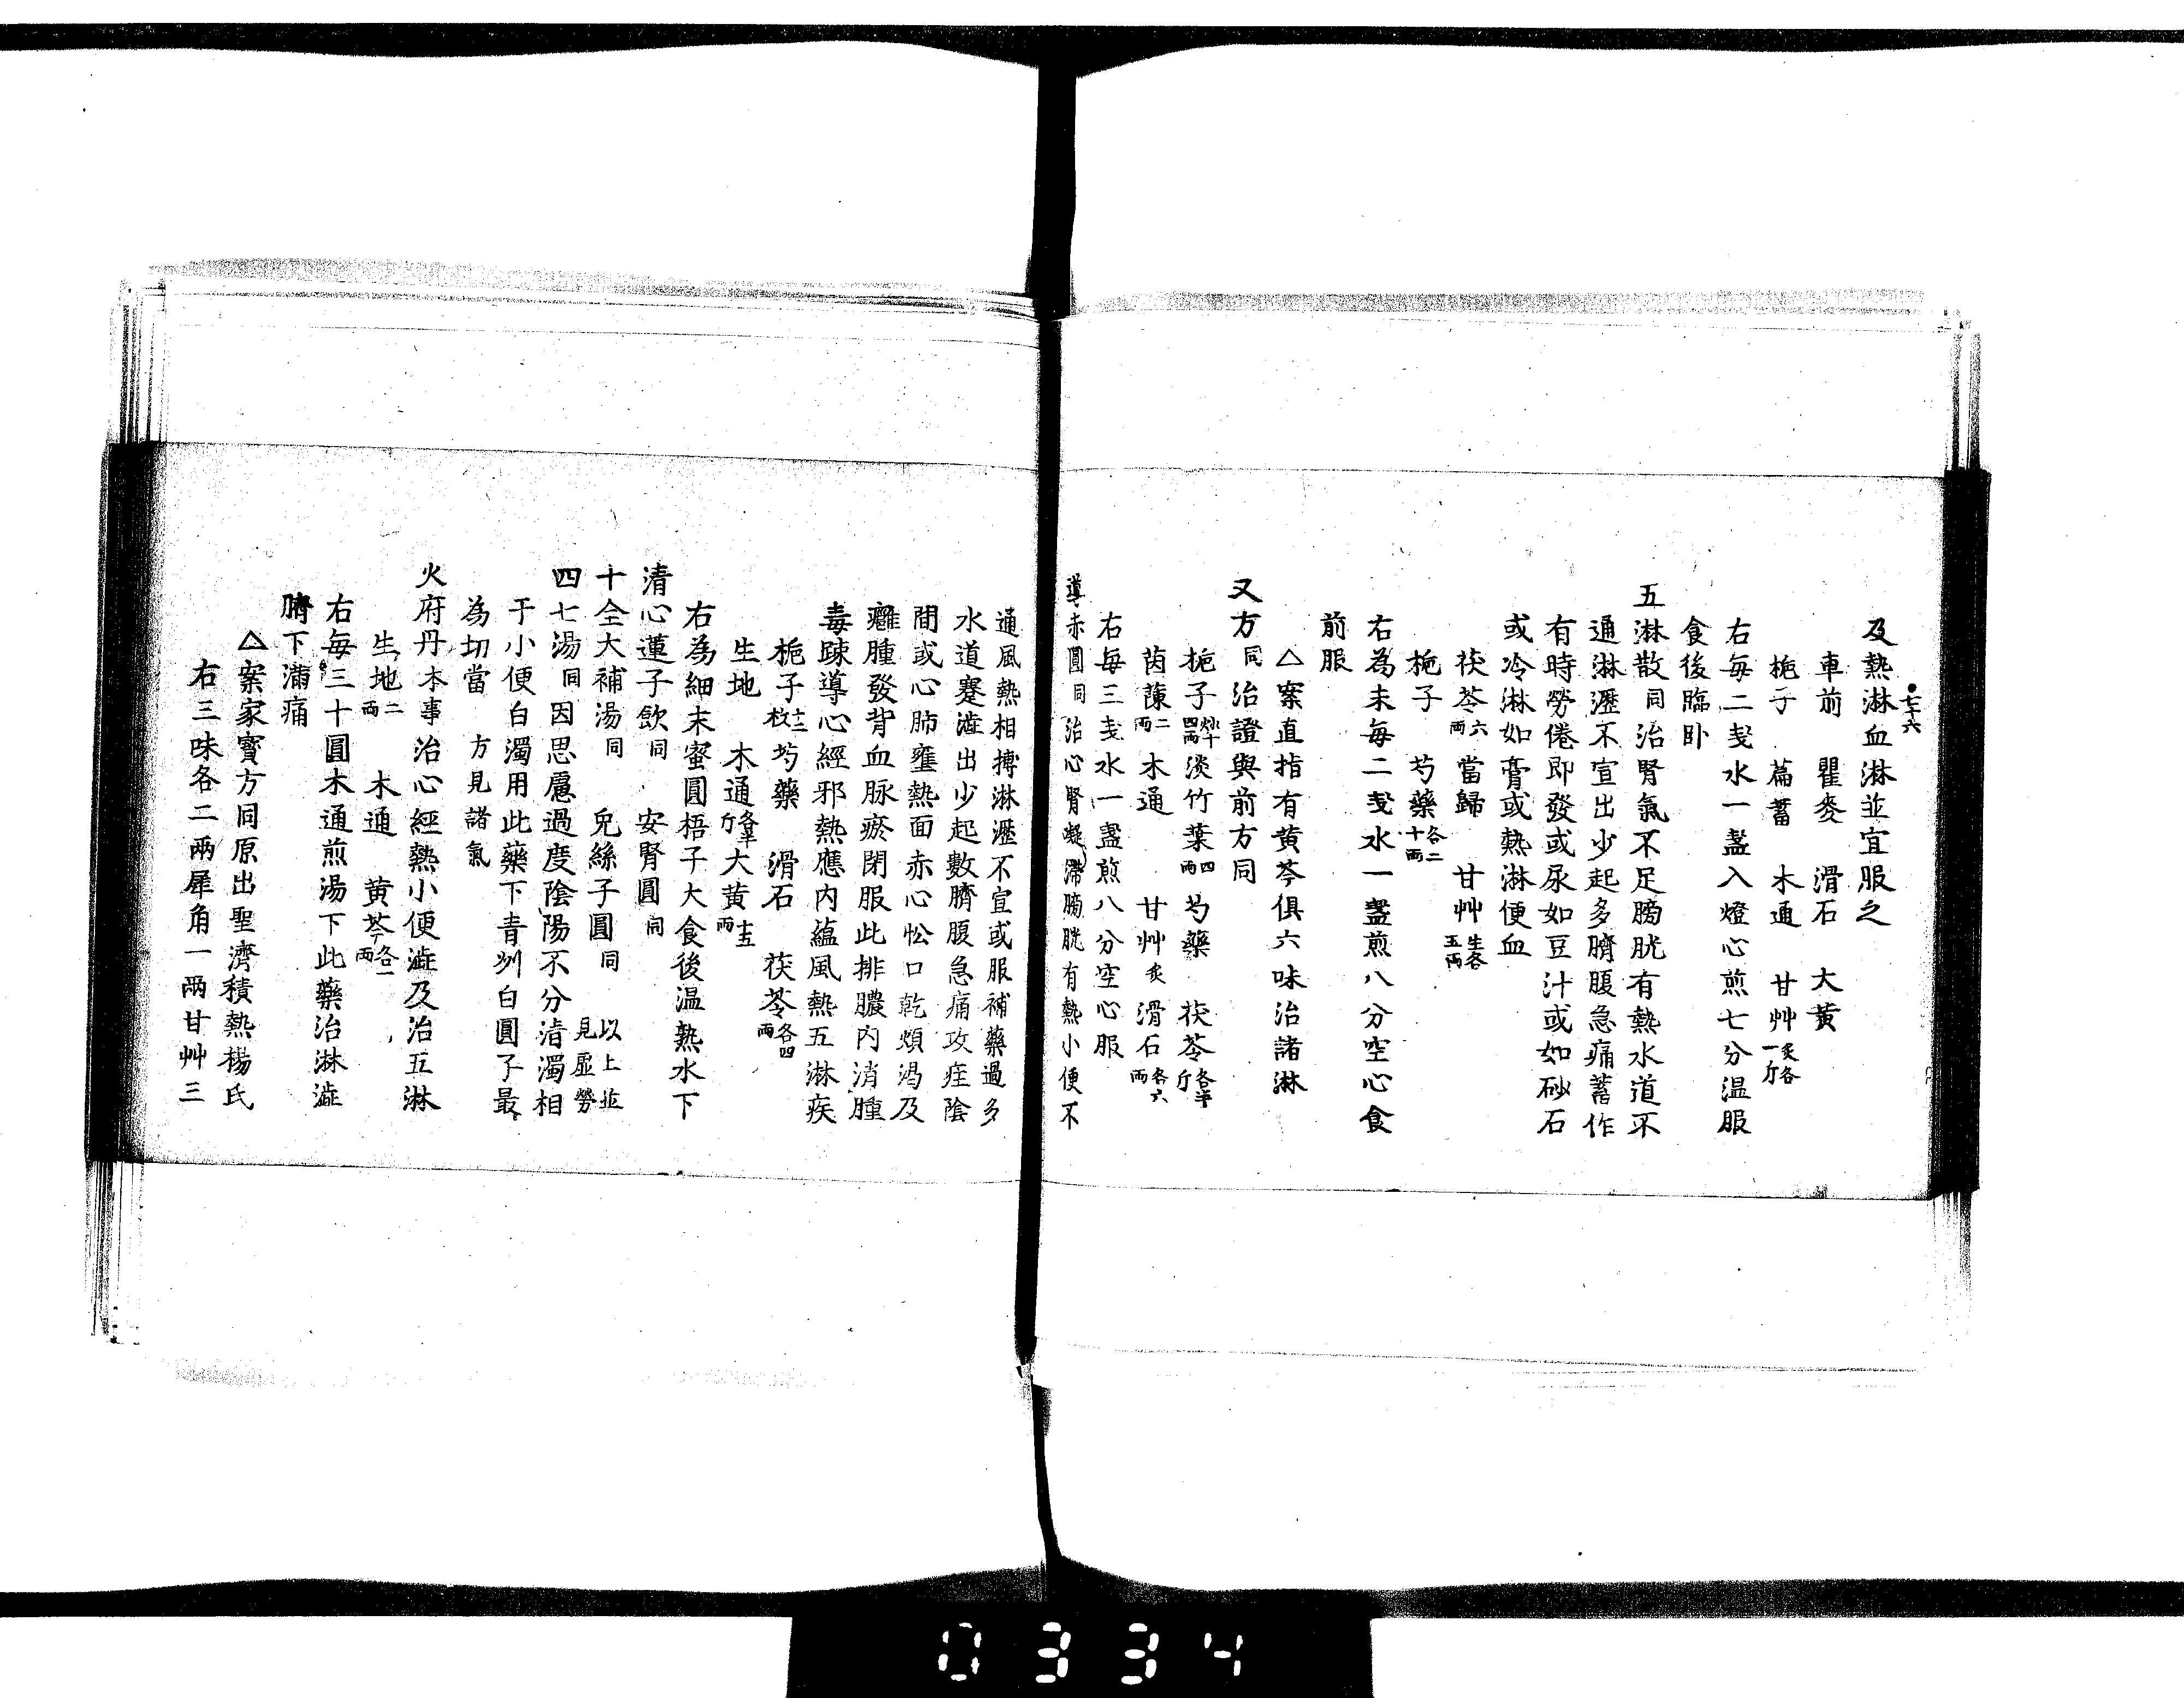 七十六
及熱淋血淋並宜服之
車前　瞿麥　滑石　大黃
梔子　萹蓄　木通　甘艸炙各一斤
右每二戔水一盞入燈心煎七分温服
食後臨卧
五淋散同治腎氣不足膀胱有熱水道不
通淋瀝不宣出少起多臍腹急痛蓄作
有時勞倦即發或尿如豆汁或如砂石
或冷淋如膏或熱淋便血
茯苓六兩　當歸　甘艸生各五兩
梔子　芍藥各二十兩
右為末每二戔水一盞煎八分空心食
前服
△案直指有黃芩俱六味治諸淋
又方同治證與前方同
梔子炒十四兩　淡竹葉四兩　芍藥　茯苓各半斤
茵蔯二兩　木通　甘艸炙　滑石各六兩
右每三戔水一盞煎八分空心服
導赤圓同治心腎凝滯膀胱有熱小便不
通風熱相搏淋瀝不宣或服補藥過多
水道蹇澁出少起數臍腹急痛攻疰陰
間或心肺壅熱面赤心忪口乾煩渴及
癰腫發背血脉瘀閉服此排膿内消腫
毒踈導心經邪熱應内蘊風熱五淋疾
梔子十二枚　芍藥　滑石　茯苓各四兩
生地　木通各半斤　大黃十五兩
右為細末蜜圓梧子大食後温熟水下
清心蓮子飲同　安腎圓同
十全大補湯同　兔絲子圓同　以上並見虛勞
四七湯同因思慮過度陰陽不分清濁相
于小便白濁用此藥下青州白圓子最
為切當　方見諸氣
火府丹本事治心經熱小便澁及治五淋
生地二兩　木通　黃芩各一兩
右每三十圓木通煎湯下此藥治淋澁
臍下滿痛
△案家寶方同原出聖濟積熱楊氏
右三味各二兩犀角一兩甘艸三
0334